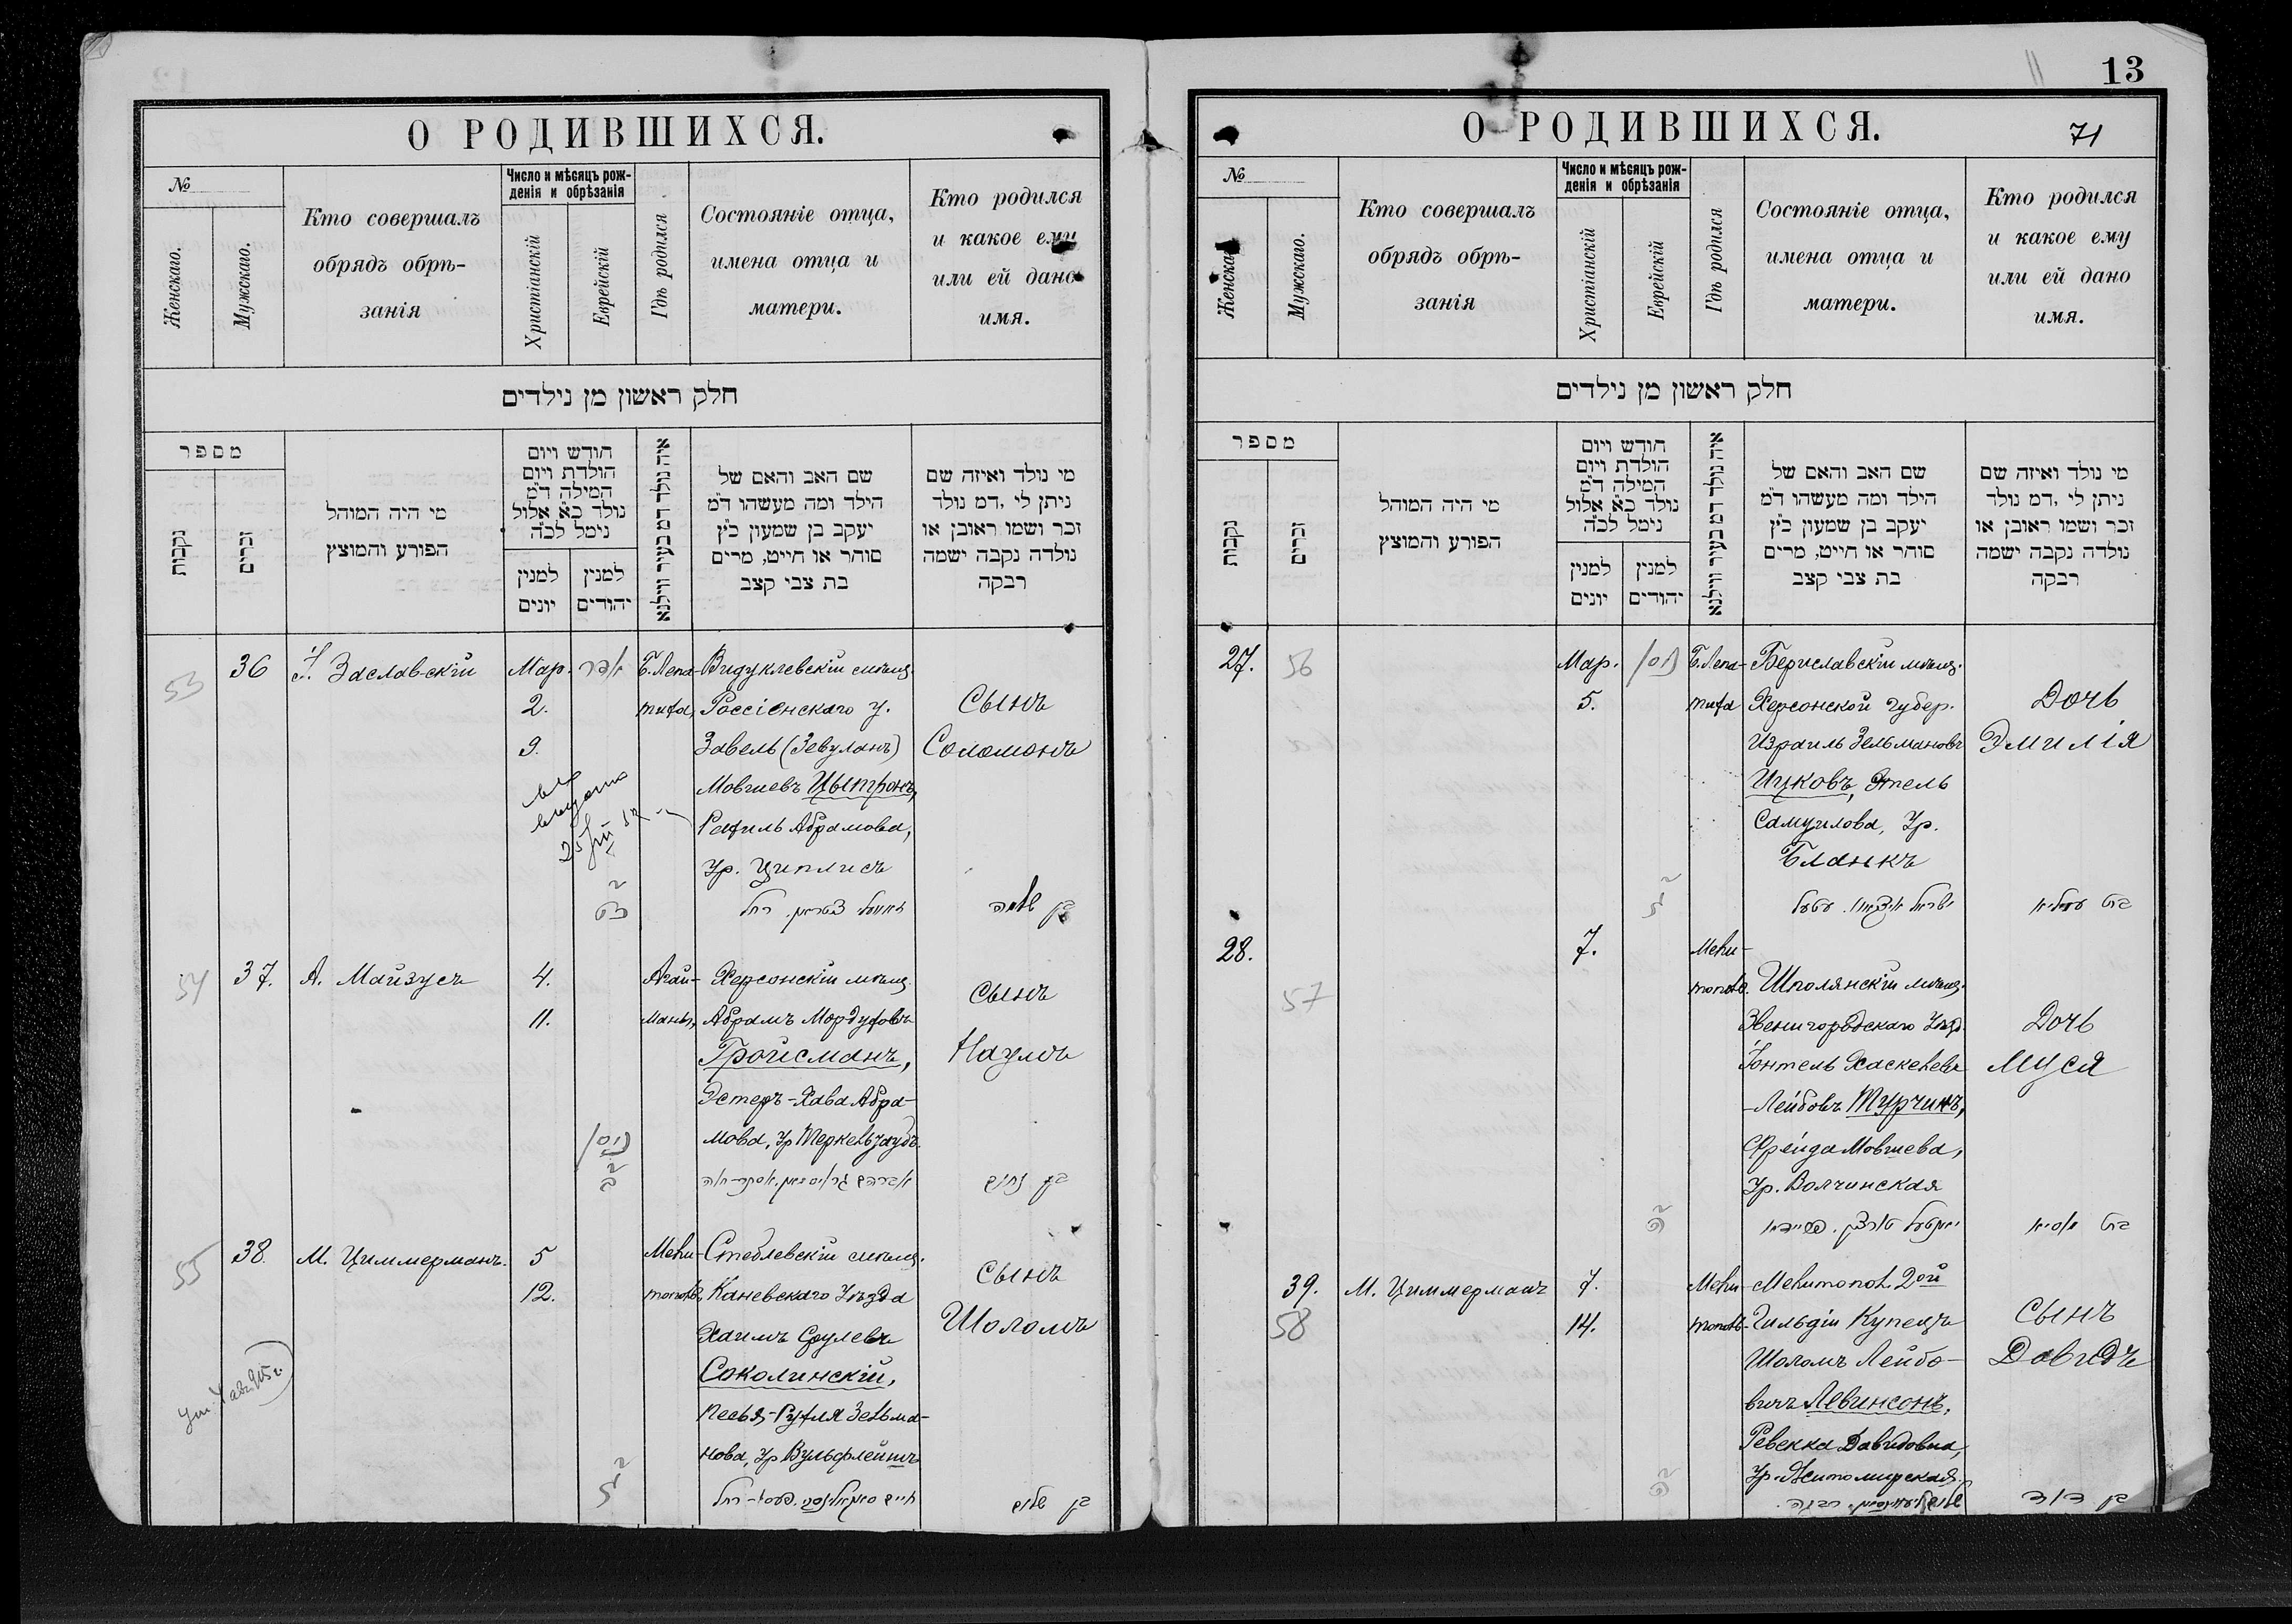 О РОДИВШИХСЯ.
№
Женскаго.
Мужскаго.
Кто совершалъ
обрядъ обрѣ-
занія
Число и мѣсяцъ рож-
денія и обрѣзанія
Христіанскій
Еврейскій
Гдѣ родился
Состояніе отца,
имена отца и
матери.
Кто родился
и какое ему
или ей дано
имя.
חלק ראשון מן נילדים
מספר
נקבות
זכרים
מי היה המוהל
הפורע והמוצץ
חודש ויום
הולדת ויום
המילה ד״מ
נולד כ״א אלול
נימל לכ״ה
למנין
יונים
למנין
יהודים
איה נולד דמ בעיר ווילנא
שם האב והאם של
הילד ומה מעשהו ד״מ
יעקב בן שמעון כ״ץ
סוהר או חייט, מרים
בת צבי קצב
מי נולד ואיזה שם
ניתן לי ,דמ נולד
זכר ושמו ראובן או
נולדה נקבה ישמה
רבקה
53
36
І. Заславскій
Мар.
2.
9.
אדר
Б. Лепа-
тиха,
Видуклевскій мѣщ.
Россіенскаго у.
Завель (Зевуланъ)
Мовшевъ Цытронъ,
Рахиль Абрамова,
Ур. Циплисъ
Сынъ
Соломонъ
בן שלמה
54
37.
А. Майзусъ
4.
11.
Агай-
маны,
Херсонскій мѣщ.
Абрамъ Мордуховъ
Гройсманъ,
Эстеръ-Хава Абра-
мова, Ур Теркельтаубъ
אברהם גרויסמאן. אסתר-חוה
Сынъ
Наумъ
בן נחום
55
38.
М. Циммерманъ.
5
12.
Мели-
тополь,
Стеблевскій мѣщ.
Каневскаго Уѣзда
Хаимъ Срулевъ
Соколинскій,
Песья-Рухля Зельма-
нова, Ур Вульфлейшъ
Сынъ
Шоломъ
בן שלום
13
О РОДИВШИХСЯ.
71
№
Женскаго.
Мужскаго.
Кто совершалъ
обрядъ обрѣ-
занія
Число и мѣсяцъ рож-
денія и обрѣзанія
Христіанскій
Еврейскій
Гдѣ родился
Состояніе отца,
имена отца и
матери.
Кто родился
и какое ему
или ей дано
имя.
חלק ראשון מן נילדים
מספר
נקבות
זכרים
מי היה המוהל
הפורע והמוצץ
חודש ויום
הולדת ויום
המילה ד״מ
נולד כ״א אלול
נימל לכ״ה
למנין
יונים
למנין
יהודים
איה נולד דמ בעיר ווילנא
שם האב והאם של
הילד ומה מעשהו ד״מ
יעקב בן שמעון כ״ץ
סוהר או חייט, מרים
בת צבי קצב
מי נולד ואיזה שם
ניתן לי ,דמ נולד
זכר ושמו ראובן או
נולדה נקבה ישמה
רבקה
27.
56
Мар.
5.
ניסן
Б. Лепа-
тиха
Бериславскій мѣщ.
Херсонской губер.
Израиль Зельмановъ
Ицковъ, Этель
Самуилова, Ур.
Бланкъ
Дочь
Эмилія
28.
57
7.
Мели-
тополь.
Шполянскій мѣщ.
Звенигородскаго Уѣзд.
Іонтель Хаскелевъ
-Лейбовъ Турчинъ,
Фрейда Мовшева,
Ур. Волчинская
Дочь
Муся
בת מוסיא
39.
58
М. Циммерманъ
7.
14.
Мели-
тополь-
Мелитопол. 2ой
Гильдіи Купецъ
Шоломъ Лейбо-
вичъ Левинсонъ,
Ревекка Давидовна,
Ур. Житомирская.
Сынъ
Давидъ
בן דוד